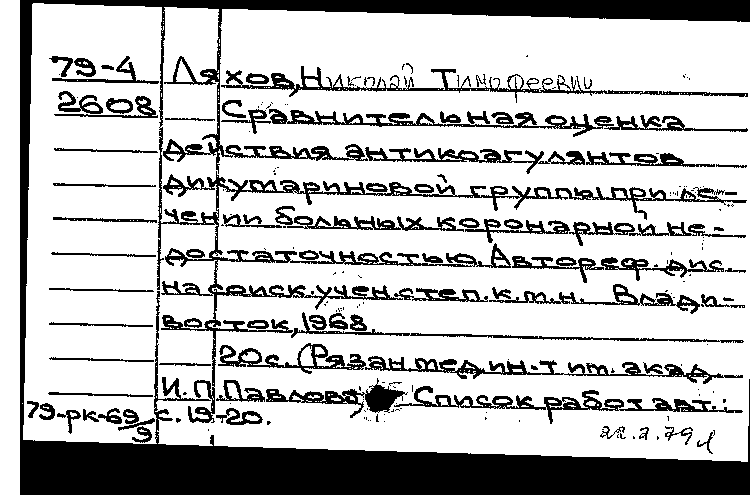 79-4 Ляхов, Николай Тимофеевич
2608 Сравнительная оценка
действия антикоагулянтов
дикумариновой группы при ле-
чении больных коронарной не-
достаточностью. Автореф. дис.
на соиск. учен. степ. к.м.н. Влади-
восток, 1968.
20с. (Рязан мед. ин-т им. акад.
И.П. Павлова, Список работ авт.:
79-рк-69/9 с. 19-20.
22.2.79